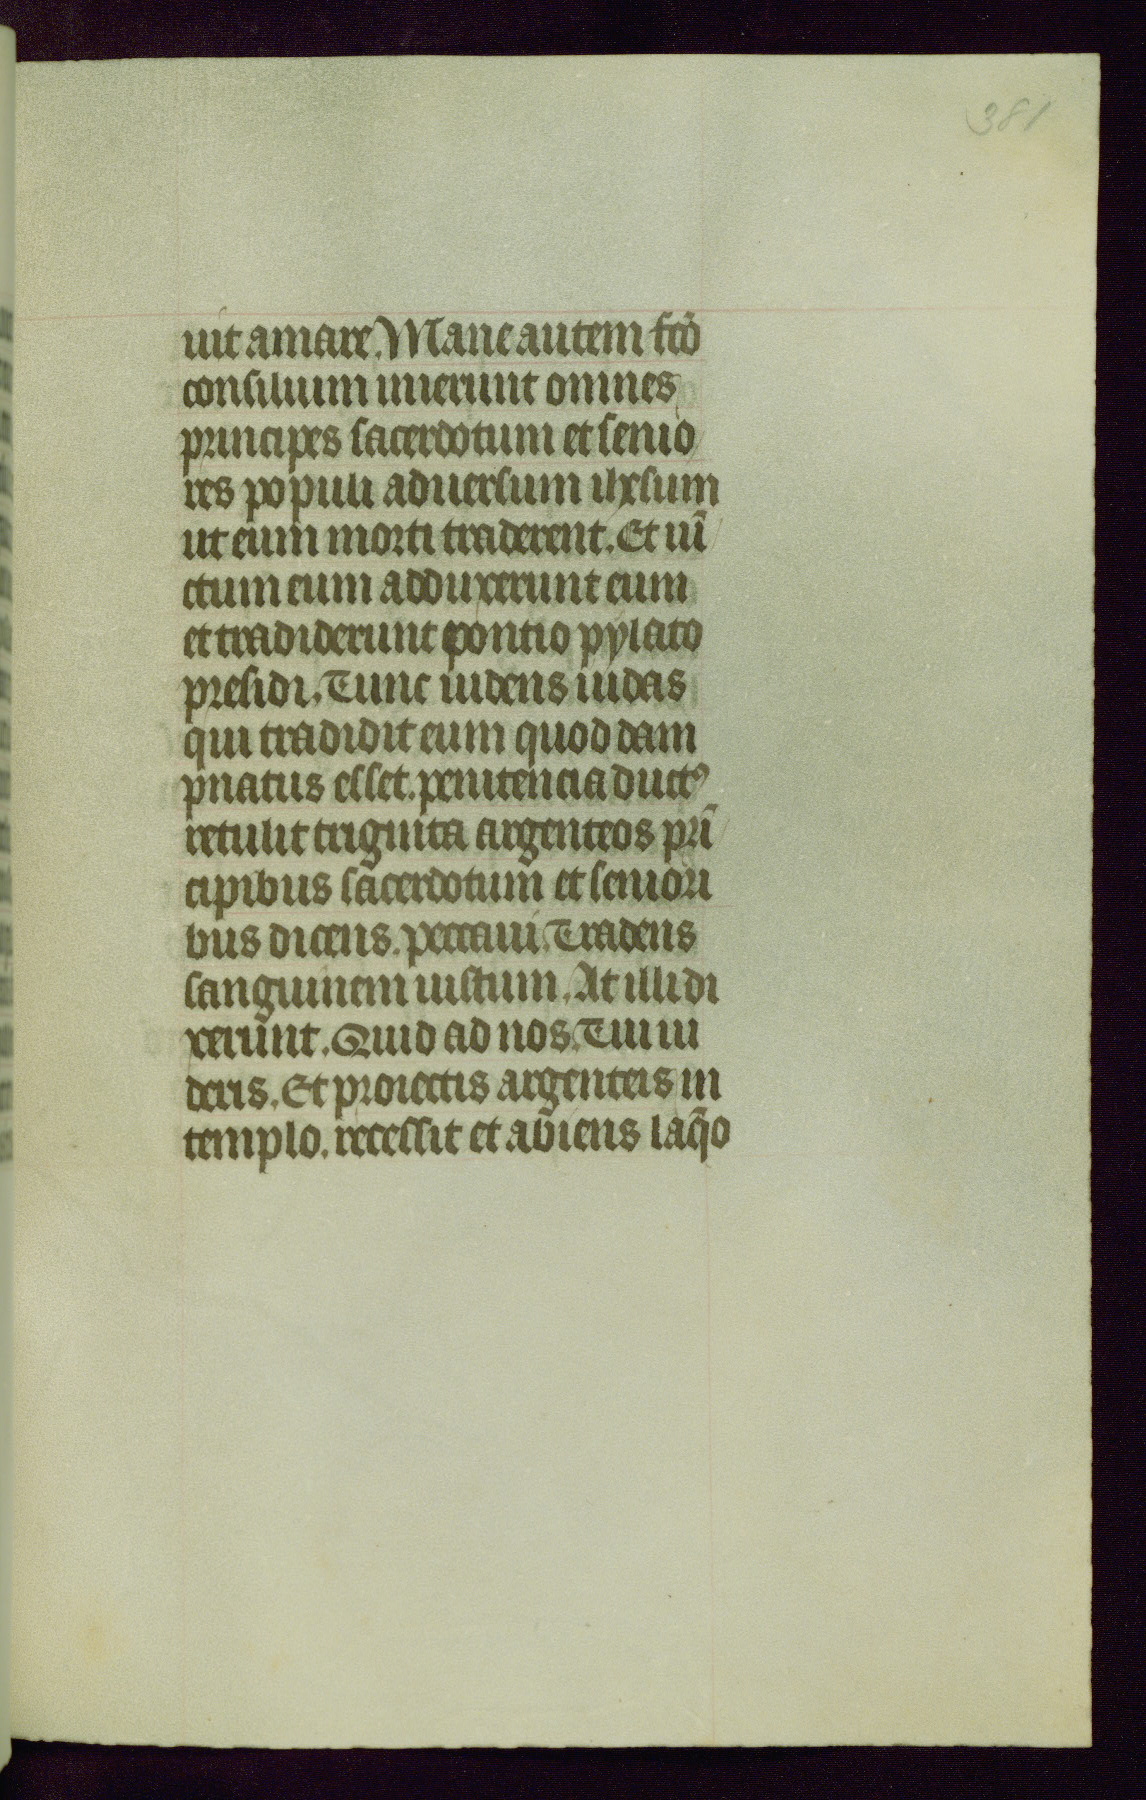 381
uit amare. Mane autem fc̄o
consilium inierunt omnes
principes sacerdotum et senio
res populi aduersum ihesum
ut eum morti traderent. Et uī
ctum eum adduxerunt eum
et tradiderunt pontio pylato
presidi. Tunc uidens iudas
qui tradidit eum quod dam
pnatus esset. penitencia duct⁹
retulit triginta argenteos prī
cipibus sacerdotum et seniori
bus dicens. peccaui. Tradens
sanguinem iustum. At illi di
xerunt. Quid ad nos. Tu ui
deris. Et proiectis argenteis in
templo. recessit et abiens laq̄o